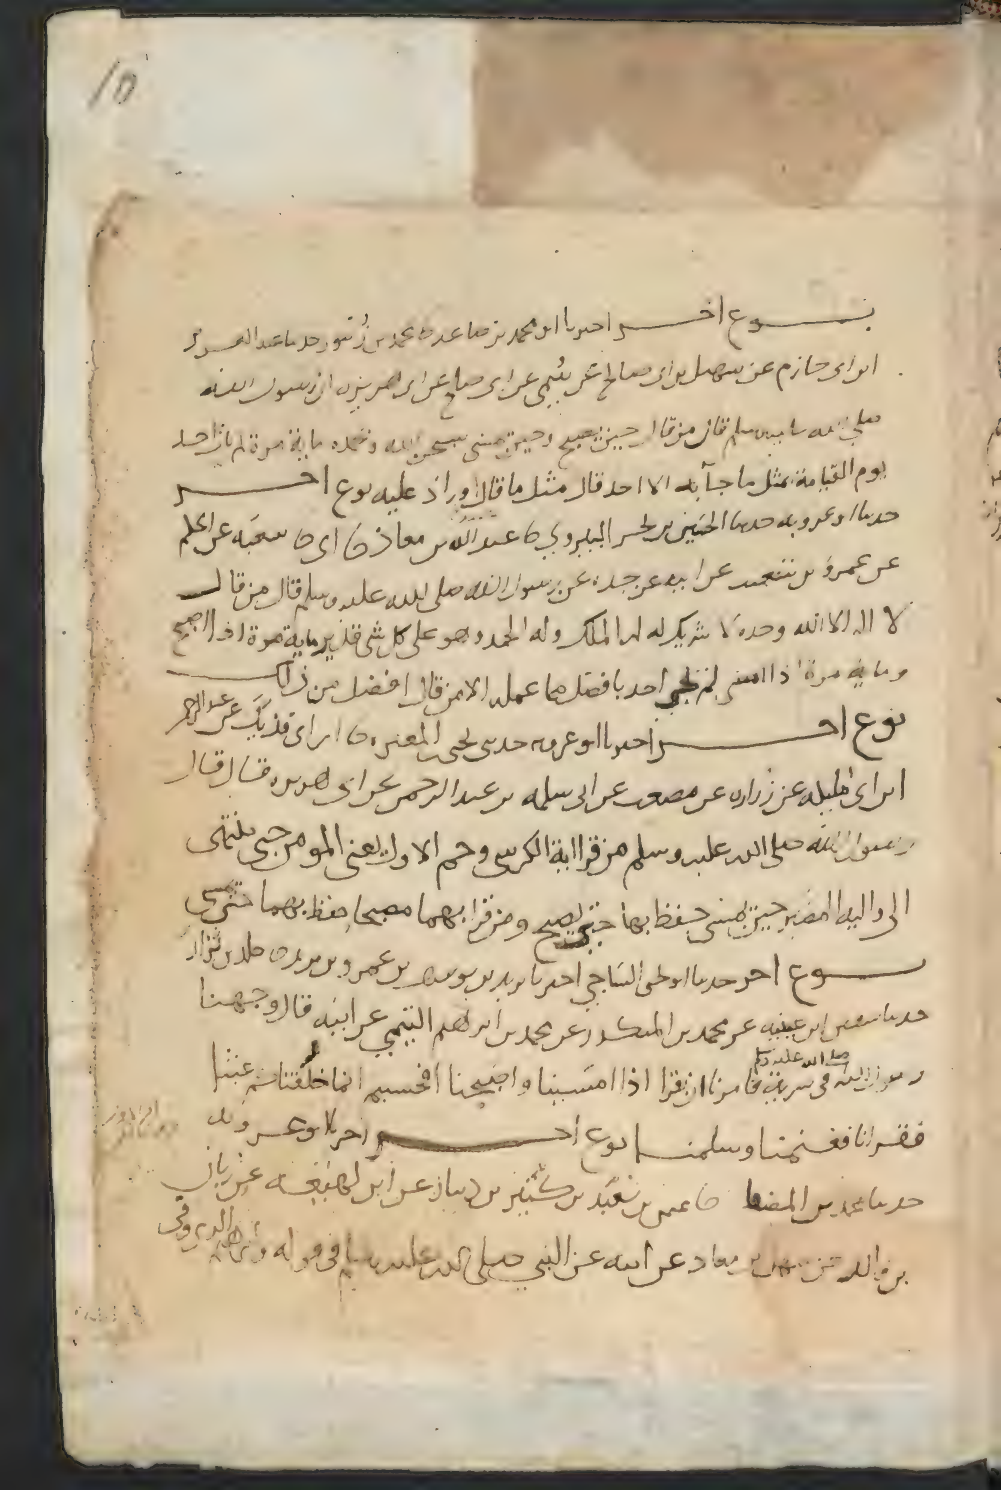 نوع اخر اخبرنا ابو محمد بن صاعد ثنا محمد بن زنبور حدثنا عبد العزيز
ابن ابي حازم عن سهيل بن ابي صالح عن سمي عن ابي صالح عن ابي هريرة ان رسول الله
صلى الله عليه وسلم قال من قال حين يصبح وحين يمسي سبحن الله وبحمده ماية مرة لم يات احد
يوم القيامة بمثل ما جآ به الا احد قال مثل ما قال او زاد عليه نوع اخر
حدثنا ابو عروبة حدثنا الحسين بن الحسن ثنا عبيد الله بن معاذ ثنا ابي ثنا شعبة عن الحكم
عن عمرو بن شعيب عن ابيه عن جده عن رسول الله صلى الله عليه وسلم قال من قال
لا اله الا الله وحده لا شريك له له الملك وله الحمد وهو على كل شي قدير ماية مرة اذا اصبح
وماية مرة اذا امسى لم يجي احد بافضل مما عمله الا من قال افضل من ذلك
نوع اخر اخبرنا ابو عروبه حدثني يحيى بن المغيره ثنا ابن ابي فديك عن عبد الرحمن
ابن ابي مليكه عن زراره عن مصعب عن ابي سلمه بن عبد الرحمن عن ابي هريره قال قال
رسول الله صلى الله عليه وسلم من قرا اية الكرسي وحم الاول يعني المومن حتى ينتهى
الى واليه المصير حين يمسي حفظ بها حتى يصبح ومن قرا بهما مصبحا حفظ بهما حتى يمسي
نوع اخر حدثنا ابو يحيى الساجي اخبرنا يزيد بن يوسف بن عمرو بن يزيد ثنا خالد بن نزار
حدثنا سفين ابن عيينه عن محمد بن المنكدر عن محمد بن ابراهيم التيمي عن ابيه قال وجهنا
رسول الله صلى الله عليه وسلم في سرية فامرنا ان نقرا اذا امسينا واصبحنا افحسبتم انما خلقناكم عبثا
فقرانا فغنمنا وسلمنا نوع اخر اخبرنا ابو عروبه
حدثنا محمد بن المصفا ثنا عثمن بن سعيد بن كثير بن دينار عن ابن لهيعه عن زبان
بن فائد عن سهل بن معاذ عن ابيه عن النبي صلى الله عليه وسلم في قوله وابراهيم الذي وفى